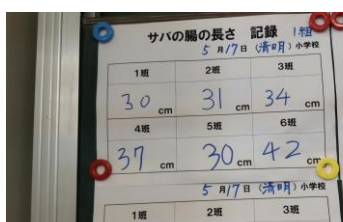 サバの腸の長さ 記録 1組
5月17日 (清明)小学校
1班 2班 3班
30cm 31cm 34cm
4班 5班 6班
37cm 30cm 42cm
5月17日 (清明)小学校
1班 2班 3班